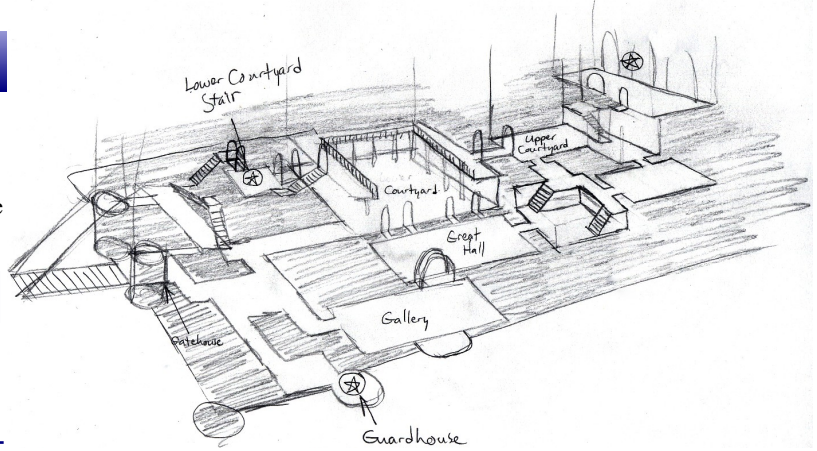 Lower Courtyard
Stair
Upper
Courtyard
Courtyard
Great
Hall
Gallery
Gatehouse
Guardhouse